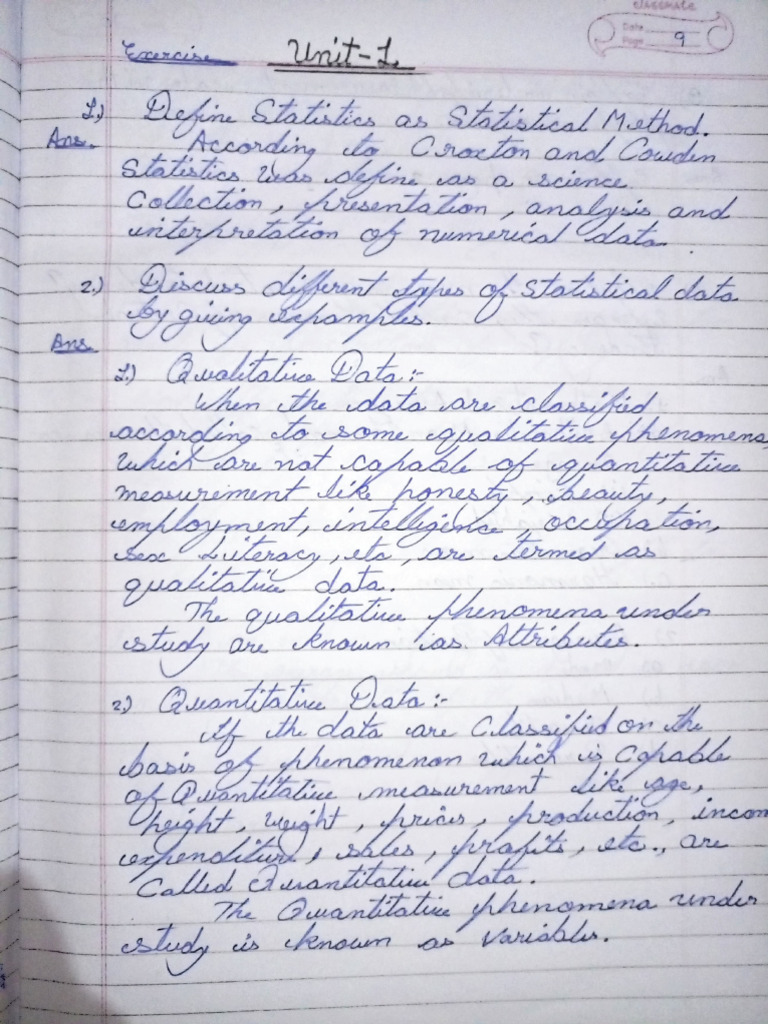 classmate
Date
Page 9
Exercise Unit-1.
1.) Define Statistics as Statistical Method.
Ans. According to Croxton and Cowden
Statistics was define as a science
Collection, presentation, analysis and
interpretation of numerical data.
2.) Discuss different types of Statistical data
by giving expamples.
Ans.
1.) Qualitative Data :-
When the data are classified
according to some qualitative phenomena
which are not capable of quantitative
measurement like honesty, beauty,
employment, intelligence, occupation,
sex Literacy, etc, are termed as
qualitative data.
The qualitative phenomena under
study are known as Attributes.
2.) Quantitative Data :-
If the data are Classified on the
basis of phenomenon which is Capable
of Quantitative measurement like age,
height, weight, prices, production, incom
expenditure, sales, profits, etc., are
Called Quantitative data.
The Quantitative phenomena under
study is known as Variables.